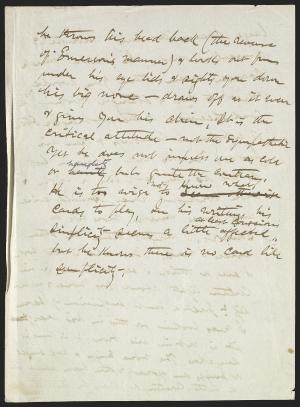 he throws his head back (the reverse
of Emerson's manner) & looks out from
under his eye lids & sights you down
his big nose — draws off as it were
& gives you his chin. It is the
critical attitude — not the sympathetic
Yet he does not impress one as cold
haughty
or but quite the contrary.
He is too wise not to know what
cards to play. In his writing, his
simplicity seems a little affected
but he knows there is no card like
simplicity.